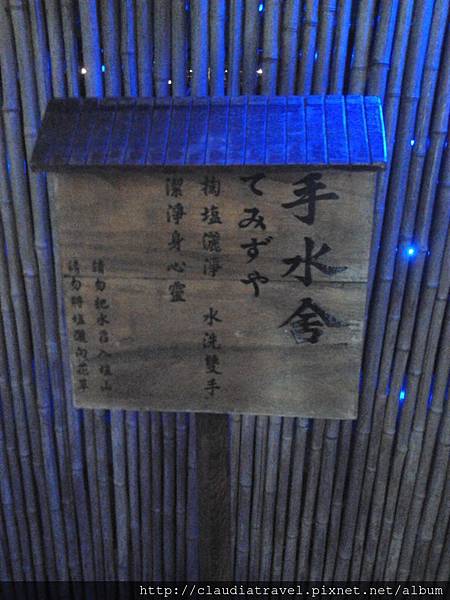 手水舍
てみずや
掬塩灑淨 水洗雙手
潔淨身心靈
請勿把水舀入塩山
請勿將塩灑向花草
http://claudiatravel.pixnet.net/album